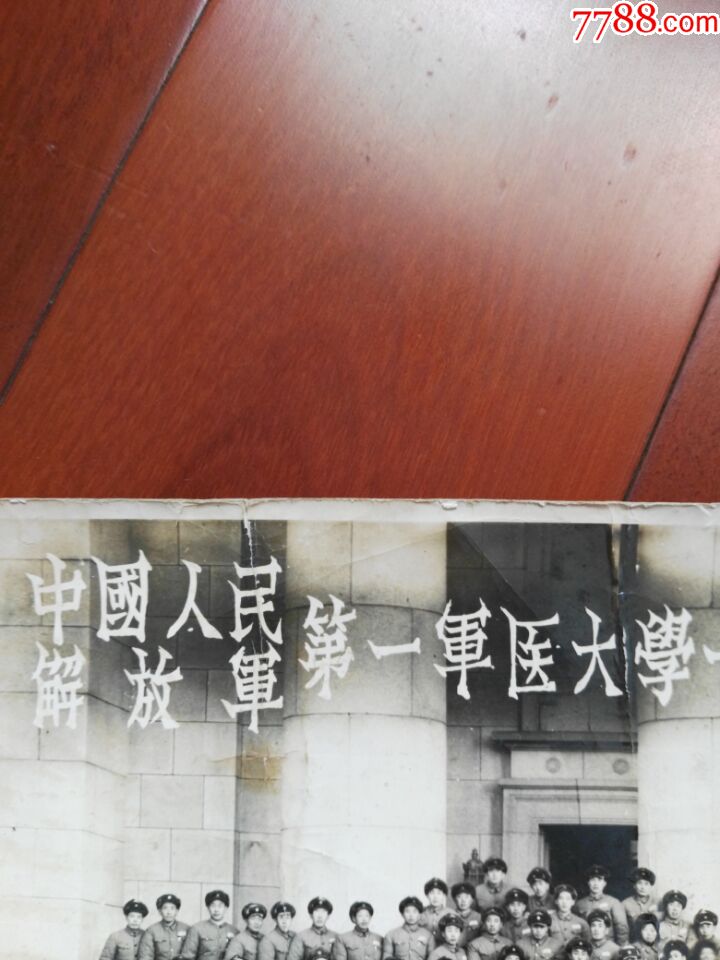 7788.com
中國人民
解放軍
第一軍医大學